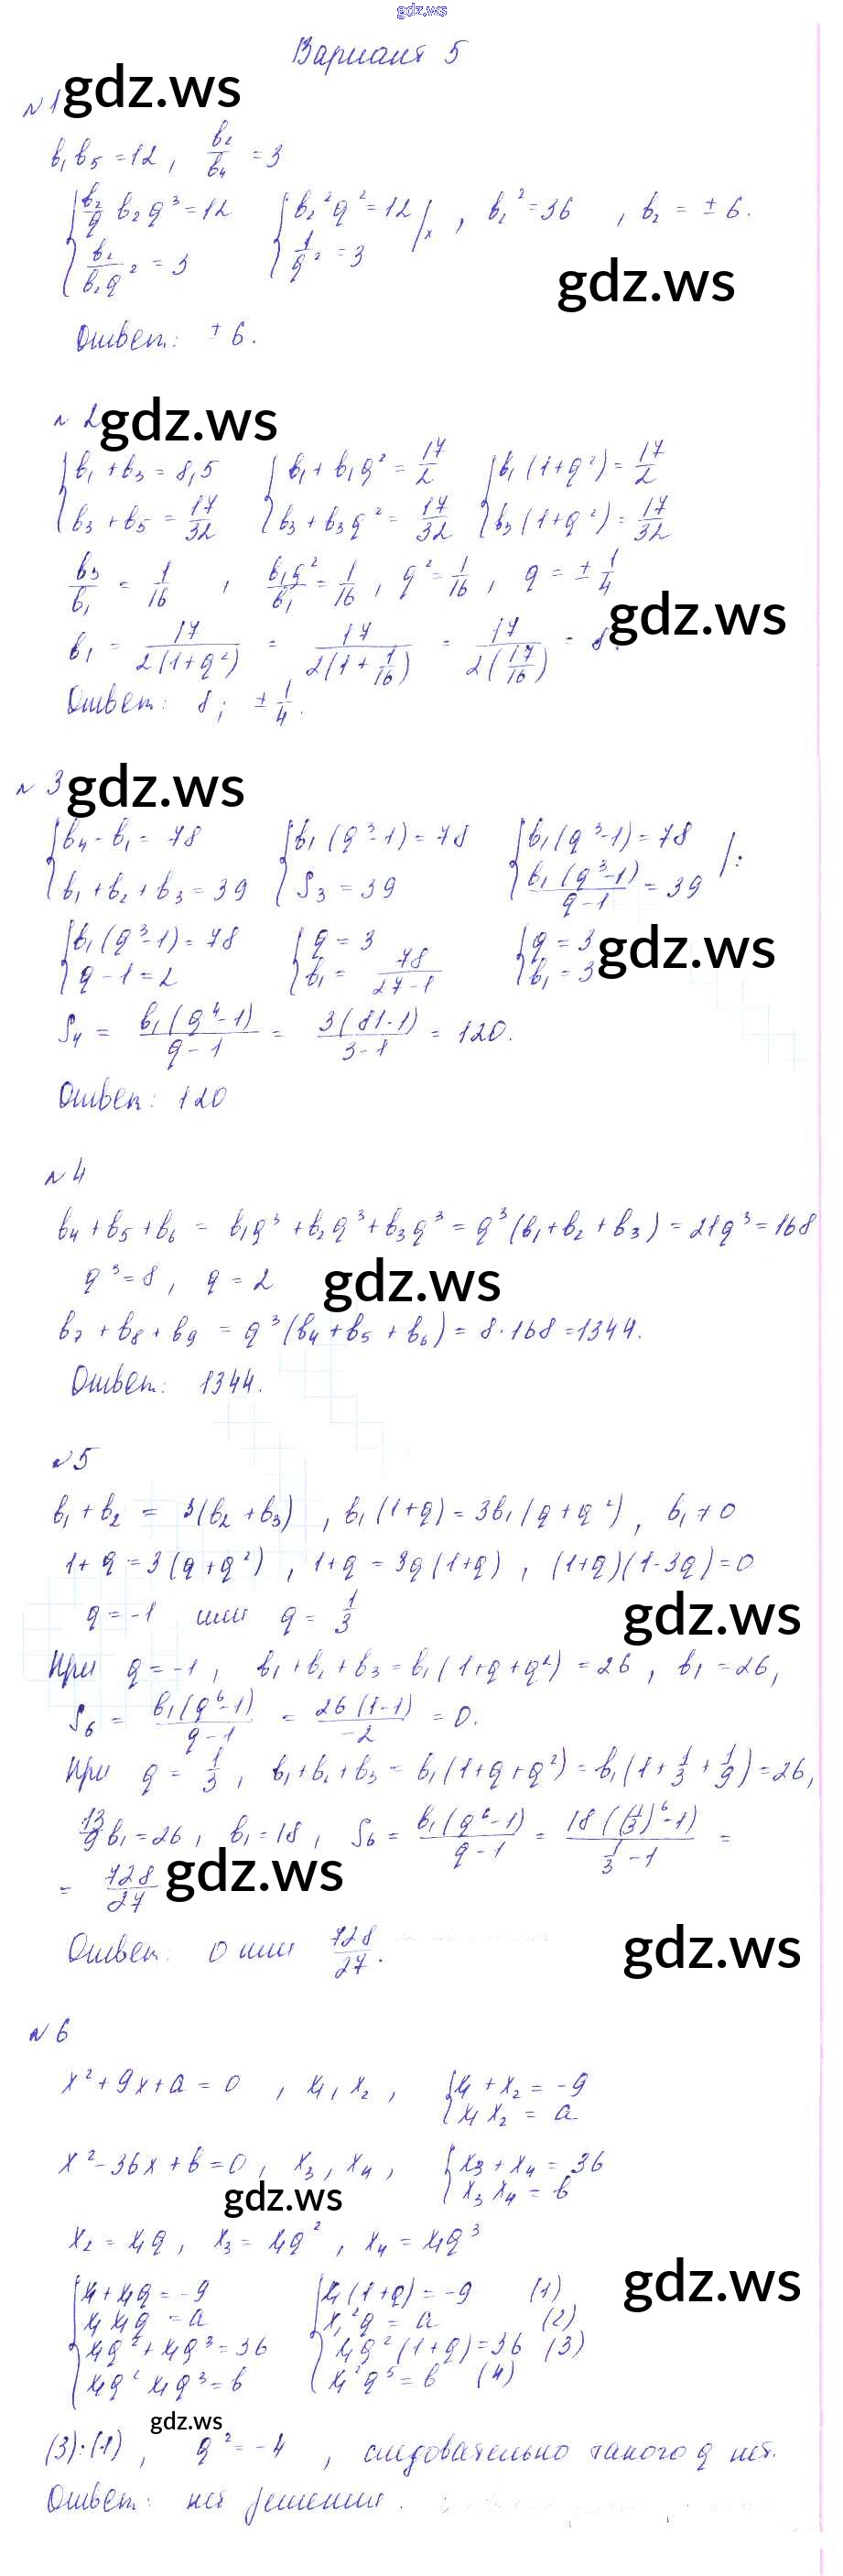 gdz.ws
Вариант 5
№1 gdz.ws
b₁b₅ = 12, b₂/b₄ = 3
{ b₂/q b₂q³ = 12 { b₂²q² = 12 |ₓ , b₂² = 36 , b₂ = ± 6.
{ b₂/(b₂q²) = 3 { 1/q² = 3
gdz.ws
Ответ: ± 6.
№ 2 gdz.ws
{ b₁ + b₃ = 8,5 { b₁ + b₁q² = 17/2 { b₁(1+q²) = 17/2
{ b₃ + b₅ = 17/32 { b₃ + b₃q² = 17/32 { b₃(1+q²) = 17/32
b₃/b₁ = 1/16 , b₁q²/b₁ = 1/16 , q² = 1/16 , q = ± 1/4
gdz.ws
b₁ = 17/(2(1+q²)) = 17/(2(1+1/16)) = 17/(2(17/16)) = 8.
Ответ: 8; ± 1/4.
№ 3 gdz.ws
{ b₄ - b₁ = 78 { b₁(q³-1) = 78 { b₁(q³-1) = 78 |:
{ b₁ + b₂ + b₃ = 39 { S₃ = 39 { b₁(q³-1)/(q-1) = 39
{ b₁(q³-1) = 78 { q = 3 { q = 3 gdz.ws
{ q - 1 = 2 { b₁ = 78/(27-1) { b₁ = 3
S₄ = b₁(q⁴-1)/(q-1) = 3(81-1)/(3-1) = 120.
Ответ: 120
№ 4
b₄ + b₅ + b₆ = b₁q³ + b₂q³ + b₃q³ = q³(b₁+b₂+b₃) = 21q³ = 168
q³ = 8, q = 2 gdz.ws
b₇ + b₈ + b₉ = q³(b₄ + b₅ + b₆) = 8·168 = 1344.
Ответ: 1344.
№5
b₁ + b₂ = 3(b₂ + b₃) , b₁(1+q) = 3b₁(q+q²), b₁ ≠ 0
1+q = 3(q+q²) , 1+q = 3q(1+q) , (1+q)(1-3q) = 0
q = -1 или q = 1/3 gdz.ws
При q = -1, b₁+b₂+b₃ = b₁(1+q+q²) = 26, b₁ = 26,
S₆ = b₁(q⁶-1)/(q-1) = 26(1-1)/(-2) = 0.
При q = 1/3, b₁+b₂+b₃ = b₁(1+q+q²) = b₁(1 + 1/3 + 1/9) = 26,
13/9 b₁ = 26, b₁ = 18, S₆ = b₁(q⁶-1)/(q-1) = 18((1/3)⁶-1)/(1/3 - 1) =
= 728/27 gdz.ws
Ответ: 0 или 728/27. gdz.ws
№ 6
x² + 9x + a = 0 , x₁, x₂, { x₁ + x₂ = -9
{ x₁x₂ = a
x² - 36x + b = 0, x₃, x₄, { x₃ + x₄ = 36
{ x₃x₄ = b
gdz.ws
x₂ = x₁q, x₃ = x₁q², x₄ = x₁q³
gdz.ws
{ x₁ + x₁q = -9 { x₁(1+q) = -9 (1)
{ x₁x₁q = a { x₁²q = a (2)
{ x₁q² + x₁q³ = 36 { x₁q²(1+q) = 36 (3)
{ x₁q² x₁q³ = b { x₁²q⁵ = b (4)
gdz.ws
(3):(1) , q² = -4 , следовательно такого q нет.
Ответ: нет решений.